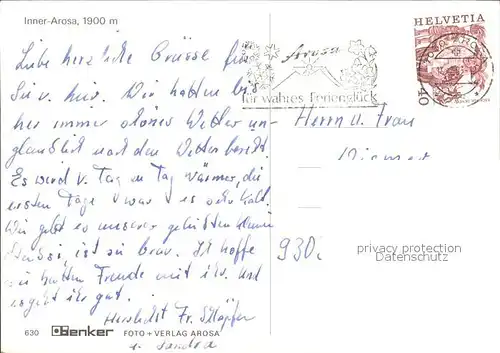 Inner-Arosa, 1900 m
Liebe herzliche Grüsse für
Sie v. hier. Wir hatten bis
her immer schönes Wetter un-
glaublich nach dem Wetter bericht.
Es wird v. Tag zu Tag wärmer, die
ersten Tage war es sehr kalt.
Wie geht es unserer geliebten kleinen
ist sie brav. Ich hoffe
sie hatten Freude mit ihr. und
es geht ihr gut.
Herzlichst Fr.
u. Sandra
630 Denker FOTO + VERLAG AROSA
Arosa
für wahres Ferienglück
HELVETIA
40
Herrn u. Frau
930.
privacy protection
Datenschutz